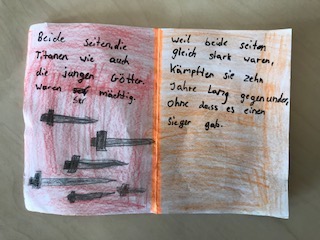 Beide seiten, die
Titanen wie auch
die jungen Götter.
waren sehr mächtig.
weil beide seiten
gleich stark waren,
kämpften sie zehn
Jahre lang gegenunder,
Ohne dass es einen
Sieger gab.